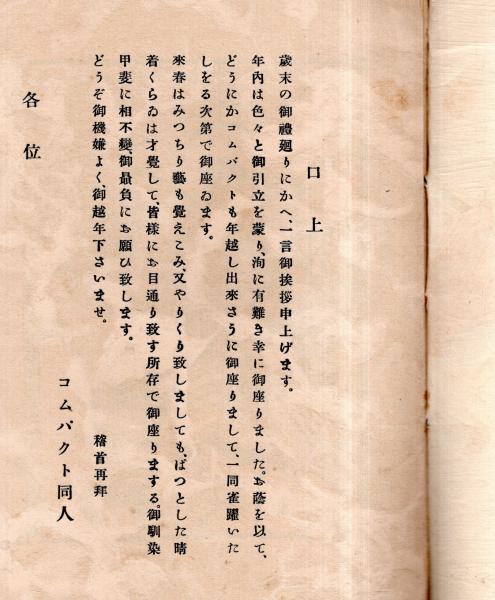 口上
歳末の御禮廻りにかへ、一言御挨拶申上げます。
年內は色々と御引立を蒙り、洵に有難き幸に御座りました。お蔭を以て、
どうにかコムパクトも年越し出來さうに御座りまして、一同雀躍いた
しをる次第で御座ゐます。
來春はみつちり藝も覺えこみ、又やりくり致しましても、ぱつとした晴
着くらゐは才覺して、皆樣にお目通り致す所存で御座りまする。御馴染
甲斐に相不變、御最負にお願ひ致します。
どうぞ御機嫌よく、御越年下さいませ。
稽首再拜
コムパクト同人
各位